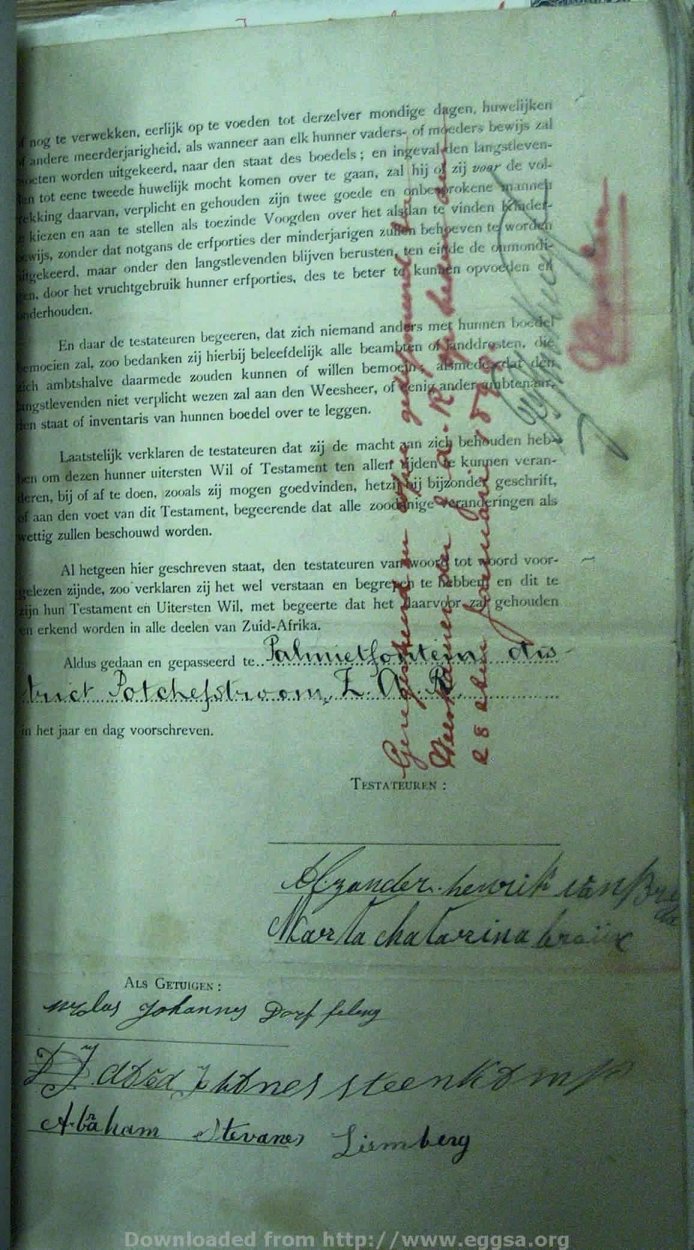 nog te verwekken, eerlijk op te voeden tot derzelver mondige dagen, huwelijken
andere meerderjarigheid, als wanneer aan elk hunner vaders- of moeders bewijs zal
oeten worden uitgekeerd, naar den staat des boedels; en ingeval den langstleven-
en tot eene tweede huwelijk mocht komen over te gaan, zal hij of zij voor de vol-
ekking daarvan, verplicht en gehouden zijn twee goede en onbesprokene mannen
e kiezen en aan te stellen als toeziende Voogden over het alsdan te vinden Kinder-
ewijs, zonder dat notgans de erfporties der minderjarigen zullen behoeven te worden
itgekeerd, maar onder den langstlevenden blijven berusten, ten einde de onmondi-
en, door het vruchtgebruik hunner erfporties, des te beter te kunnen opvoeden en
nderhouden.
En daar de testateuren begeeren, dat zich niemand anders met hunnen boedel
emoeien zal, zoo bedanken zij hierbij beleefdelijk alle beambten of landdrosten, die
ich ambtshalve daarmede zouden kunnen of willen bemoeien, alsmede dat den
angstlevenden niet verplicht wezen zal aan den Weesheer, of eenig ander ambtenaar,
en staat of inventaris van hunnen boedel over te leggen.
Laatstelijk verklaren de testateuren dat zij de macht aan zich behouden heb-
en om dezen hunner uitersten Wil of Testament ten allen tijden te kunnen veran-
deren, bij of af te doen, zooals zij mogen goedvinden, hetzij bij bijzonder geschrift,
of aan den voet van dit Testament, begeerende dat alle zoodanige veranderingen als
wettig zullen beschouwd worden.
Al hetgeen hier geschreven staat, den testateuren van woord tot woord voor-
gelezen zijnde, zoo verklaren zij het wel verstaan en begrepen te hebben, en dit te
zijn hun Testament en Uitersten Wil, met begeerte dat het daarvoor zal gehouden
en erkend worden in alle deelen van Zuid-Afrika.
Aldus gedaan en gepasseerd te Palmietfontein dis
trict Potchefstroom, Z. A. R.
in het jaar en dag voorschreven.
Geregistreerd ten
Weeskamer der Z. A. R. op heden
28 sten Januari
TESTATEUREN:
Alezander henrik van Bre
da
Marta chatarina
ALS GETUIGEN:
Johannes Dorffeling
steenkamp
Abraham Stevanes Liemberg
Downloaded from http://www.eggsa.org